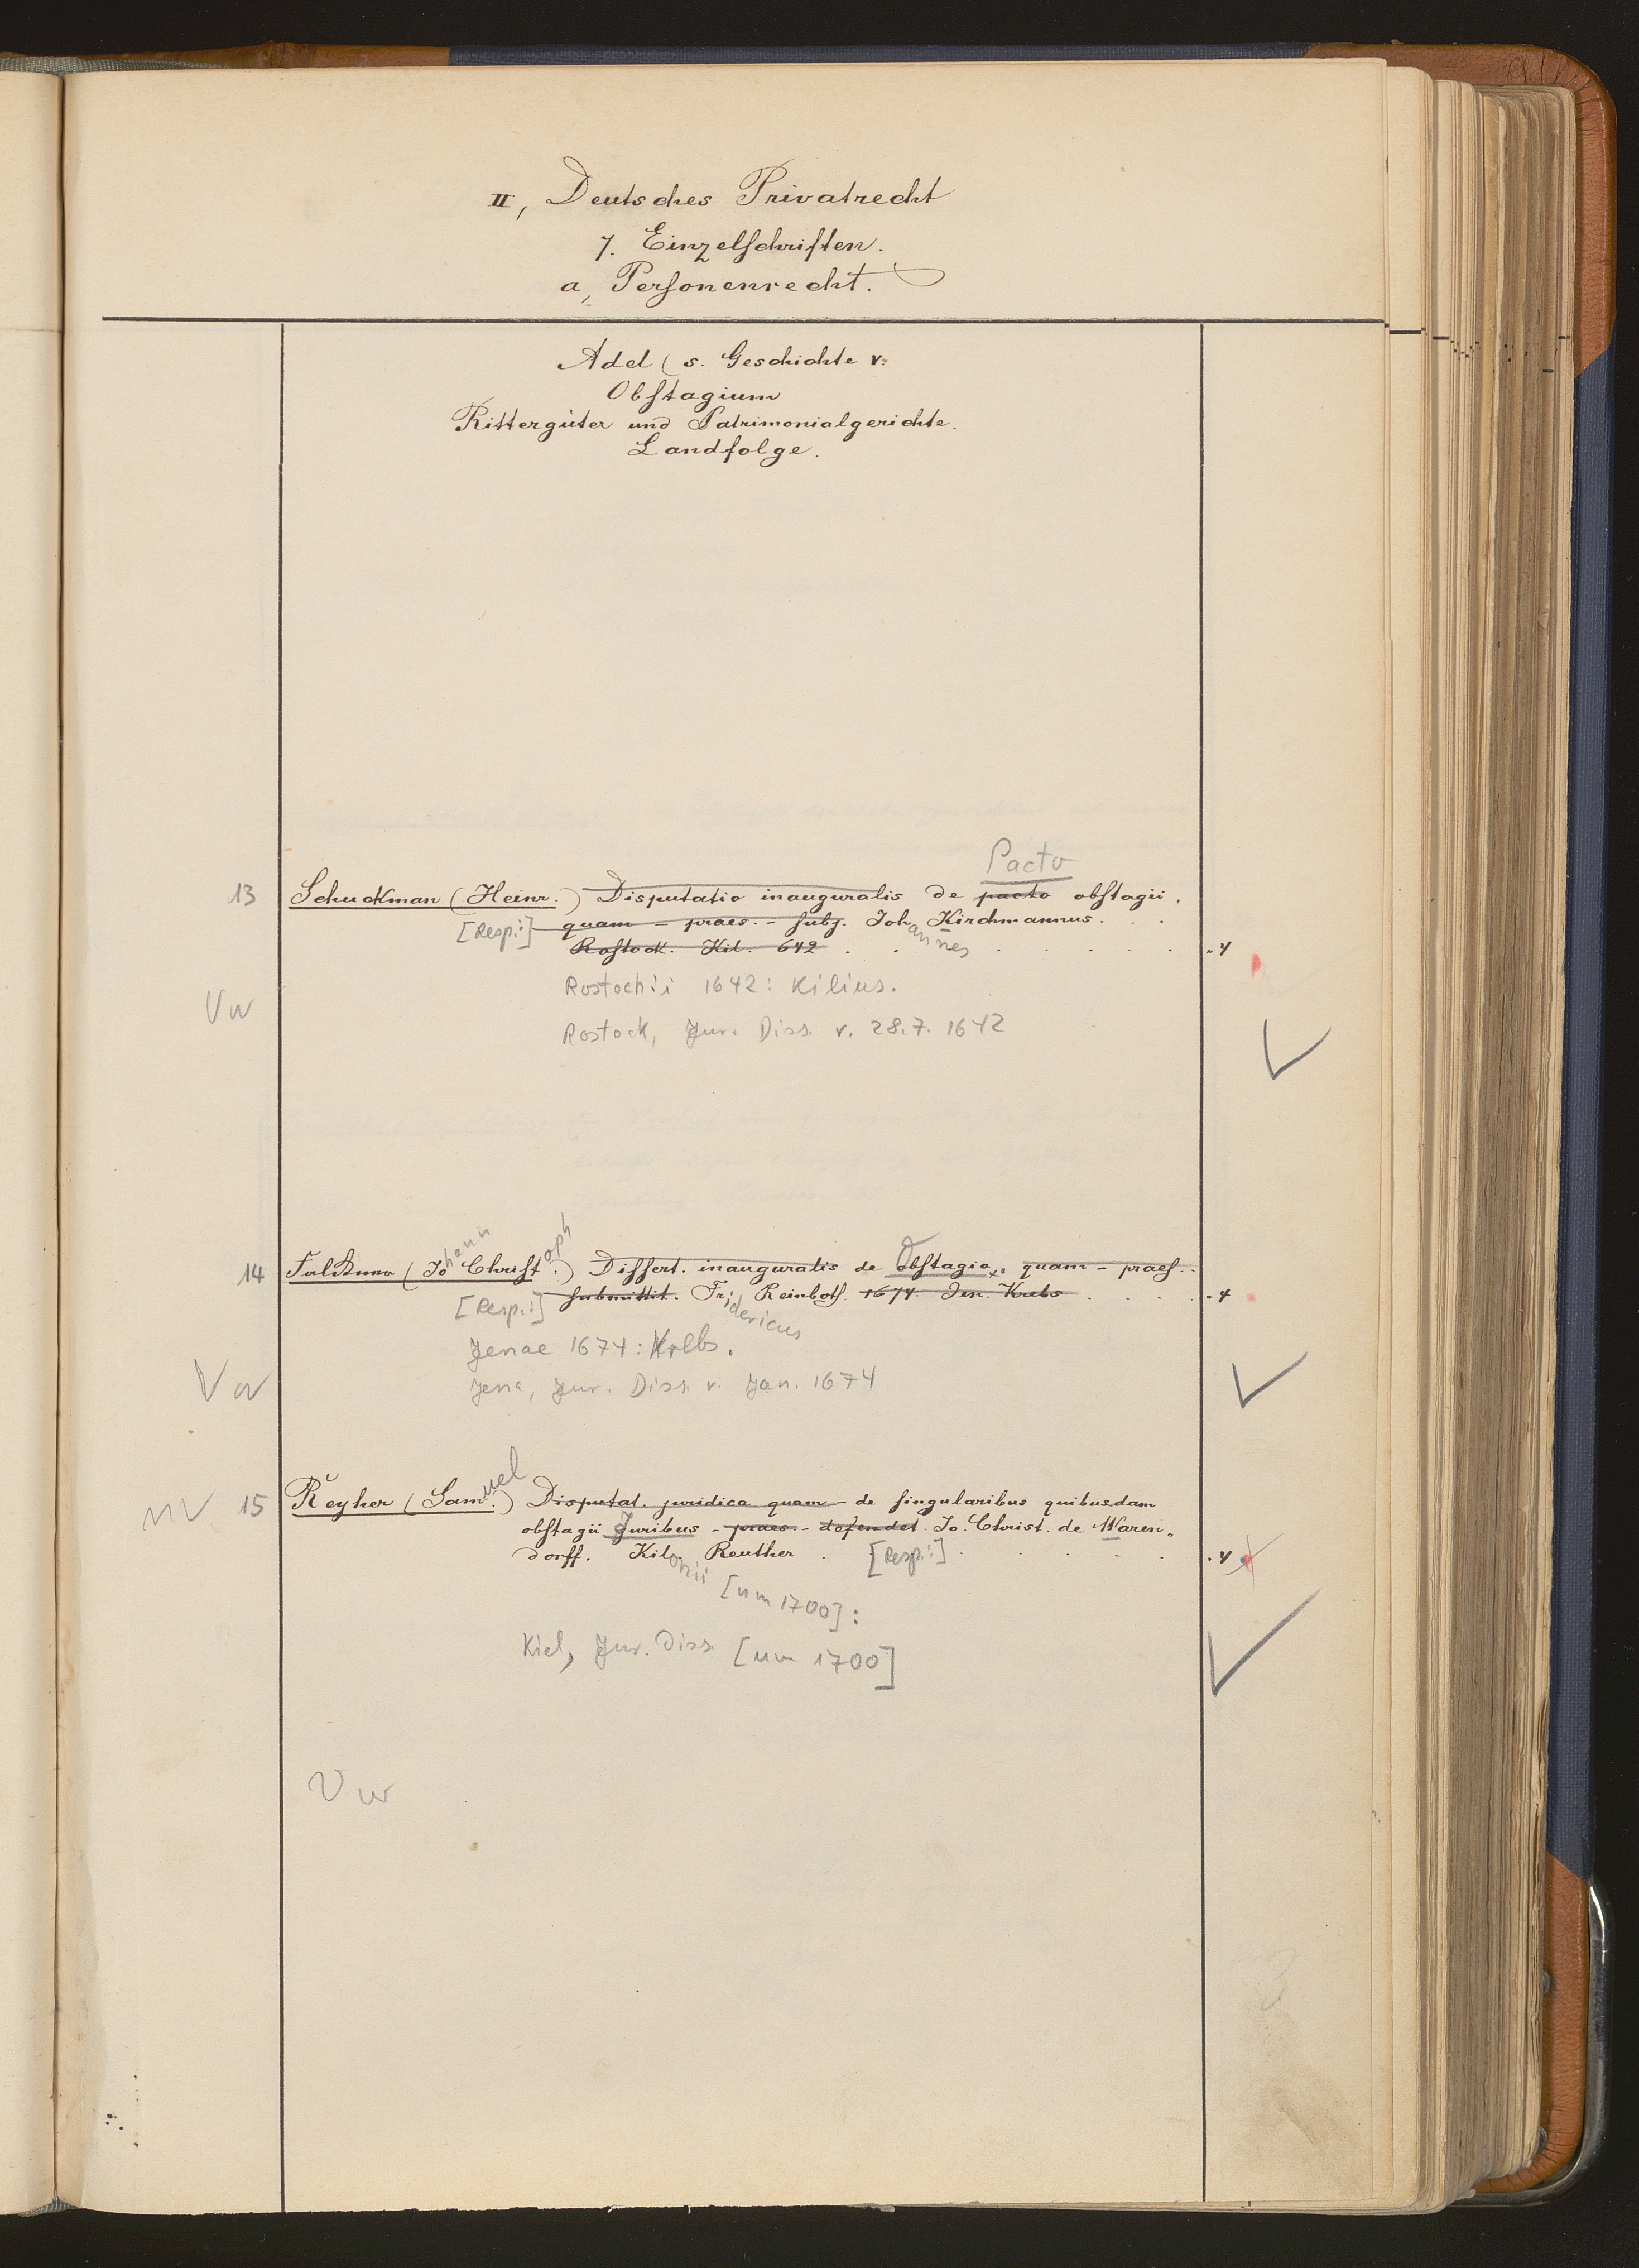 II, Deutsches Privatrecht
7. Einzelschriften.
a, Personenrecht.
Adel (s. Geschichte V.
Obstagium
Rittergüter und Patrimonialgerichte.
Landfolge.
Pacto
13 Schuckman (Heinr.) Disputatio inauguralis de pacto obstagii,
[Resp.:] quam - praes. - subj. Johannes Kirchmannus.
Rostock. Kil. 642 . . . . . . 4
Rostochii 1642: Kilius.
Vw
Rostock, Jur. Diss. v. 28.7. 1642
14 Falckner (Johann Christoph.) Dissert. inauguralis de Obstagio. quam - praes.
[Resp.:] submittit. Fridericus Reinboth. 1674. Jen. Krebs . . . . 4
Jenae 1674: Krebs.
Vw Jena, Jur. Diss. v. Jan. 1674
15 Reyher (Samuel.) Disputat. juridica quam - de singularibus quibusdam
obstagii Juribus - praes - defendet. Jo. Christ. de Waren„
dorff. Kilonii Reuther . [Resp.:] . . . . 4
[um 1700]:
Kiel, Jur. Diss. [um 1700]
Vw